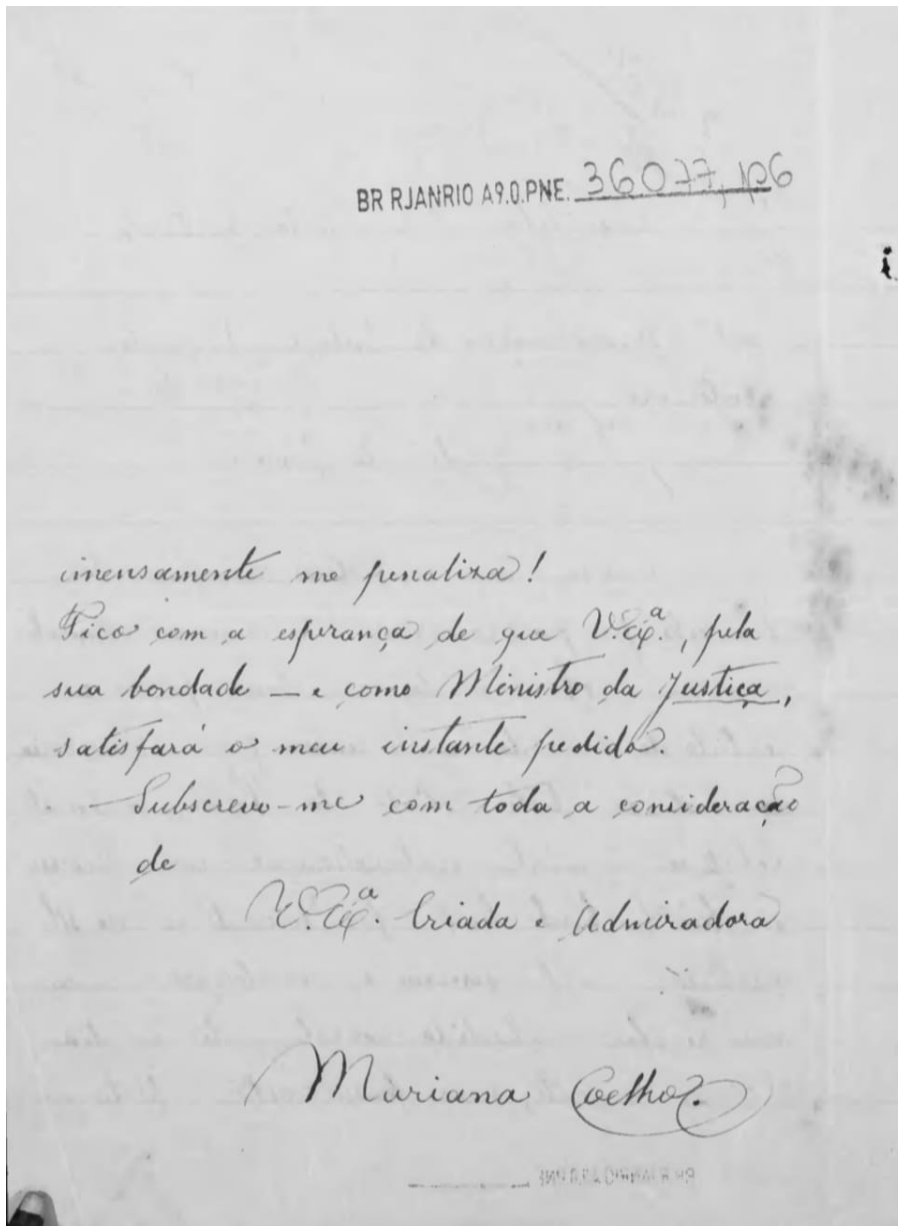 BR RJANRIO A9.0.PNE. 36077, p6
imensamente me penaliza!
Fico com a esperança de que V.Exª., pela
sua bondade — e como Ministro da Justiça,
satisfará o meu instante pedido.
Subscrevo-me com toda a consideração
de
V.Exª. Criada e Admiradora
Mariana Coelho.